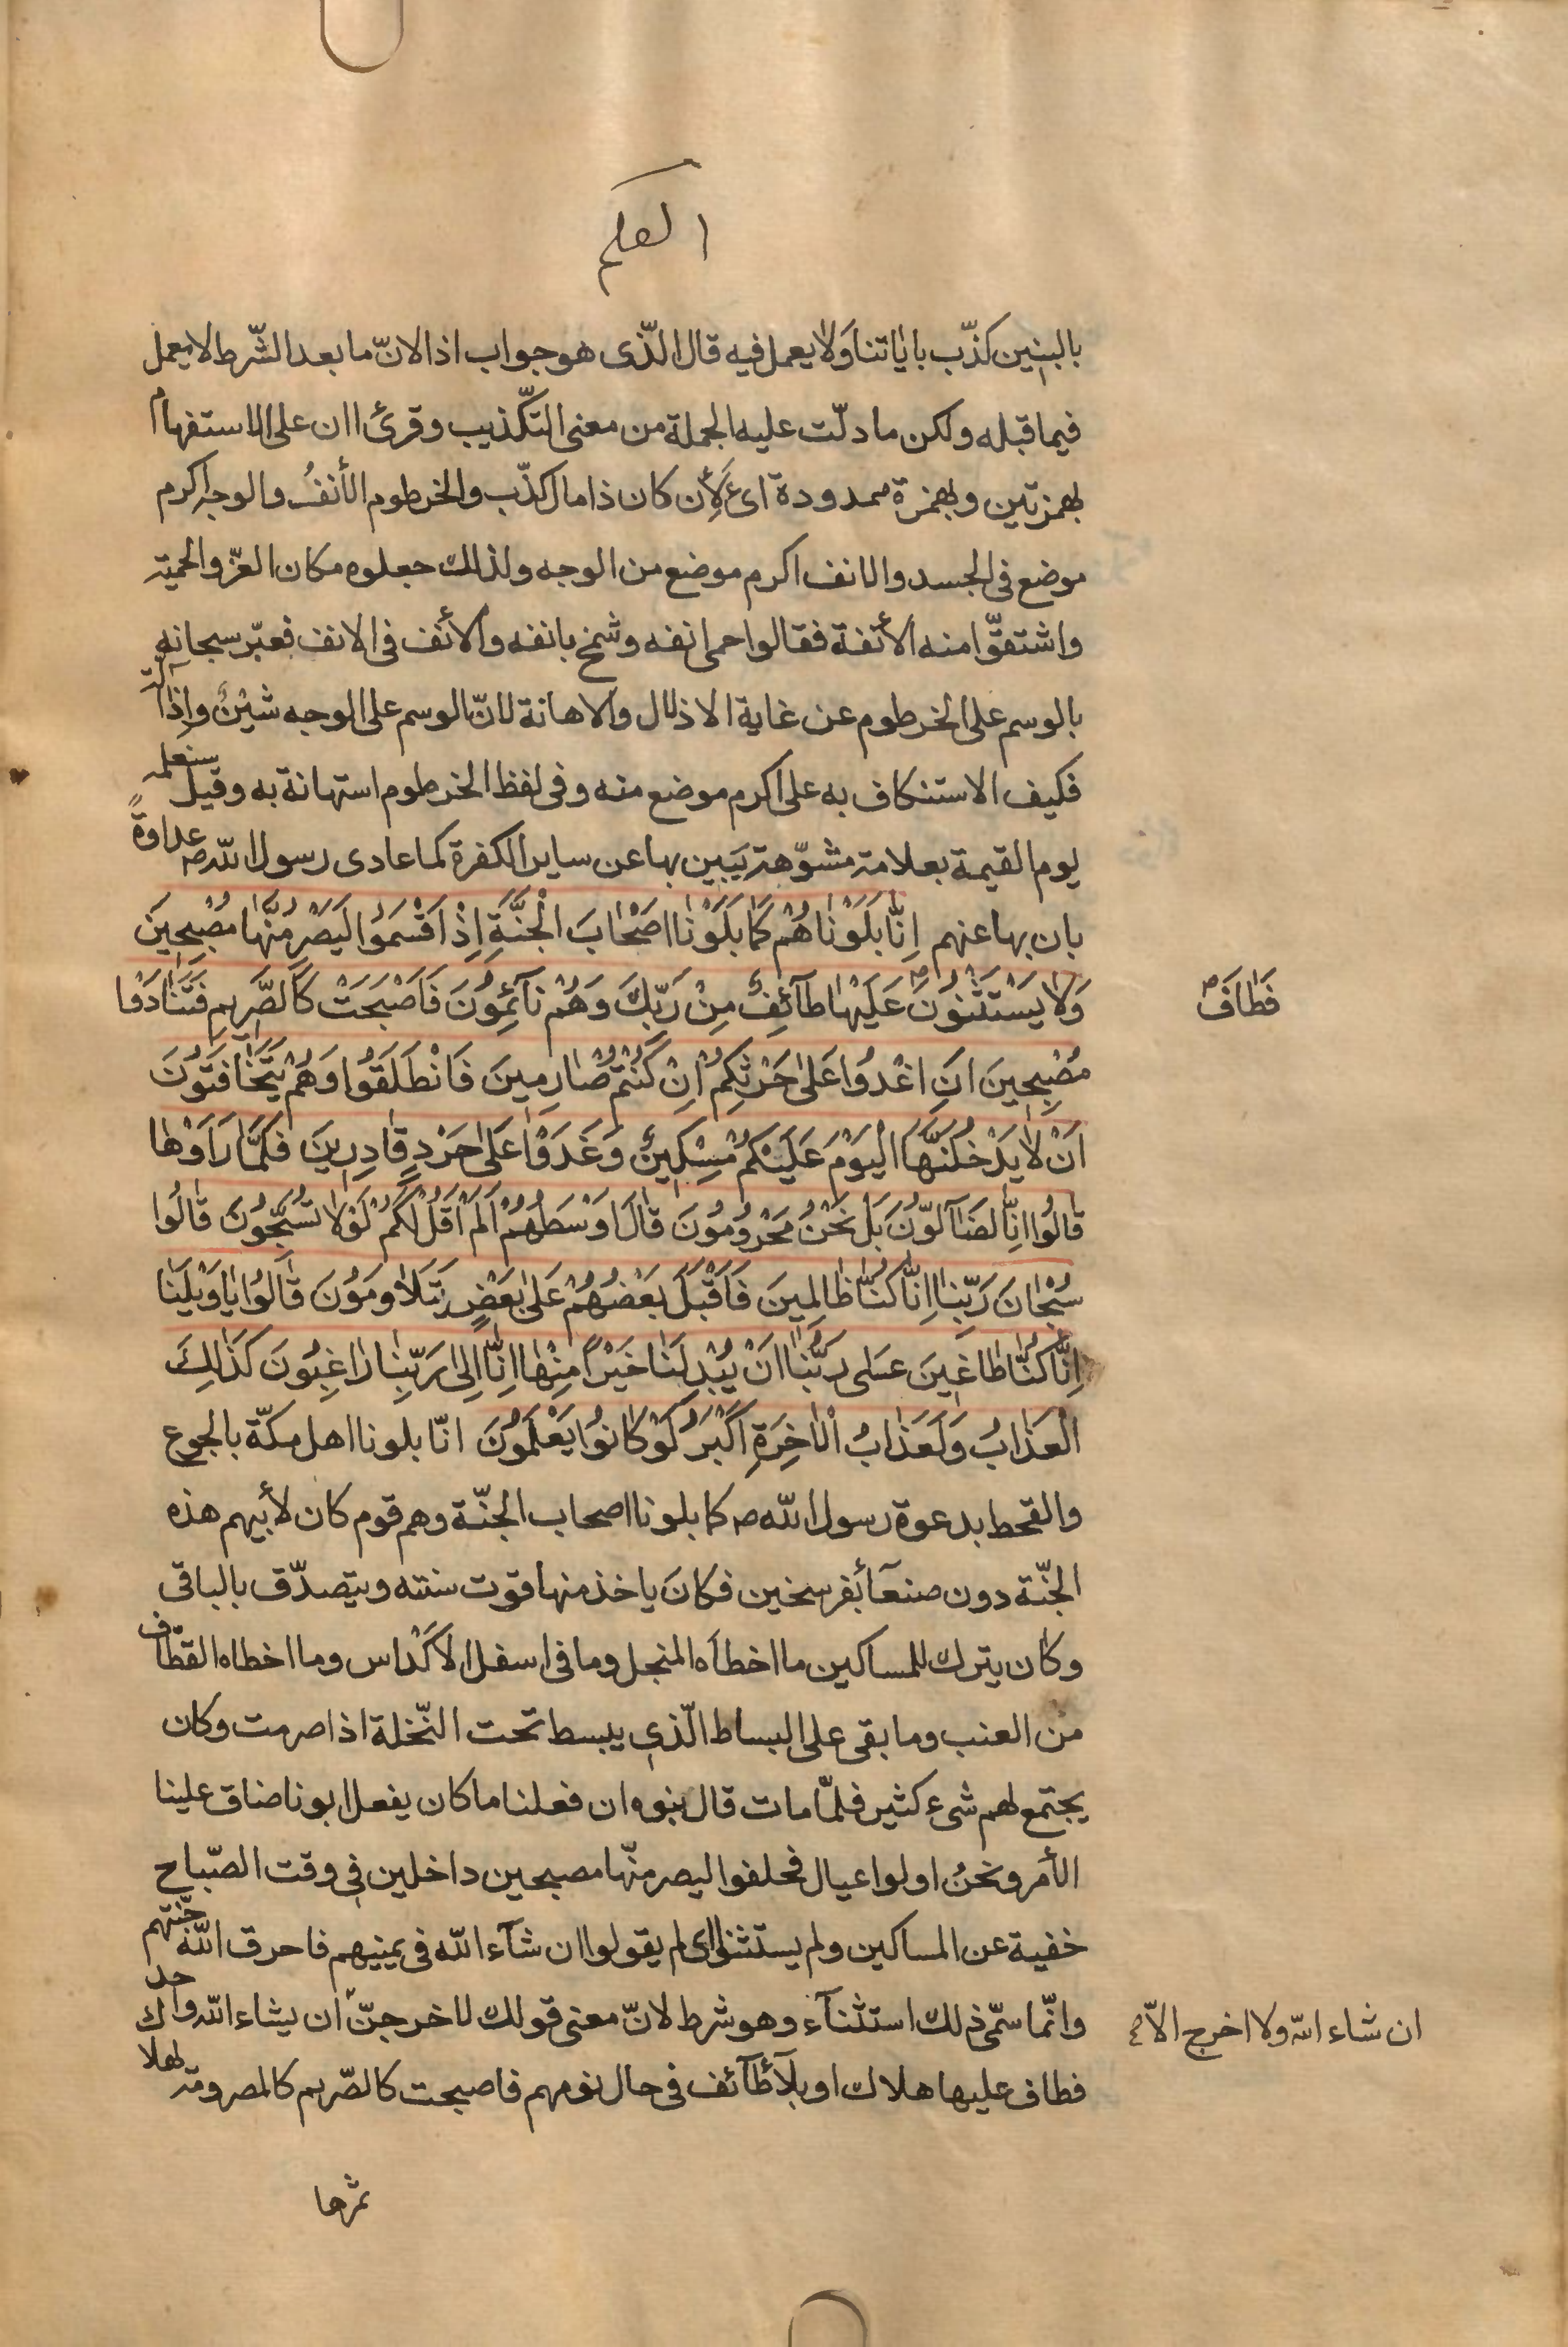 القلم
بالبنين كذّب باياتنا ولا يعمل فيه قال الّذى هو جواب اذا لانّ ما بعد الشّرط لا يعمل
فيما قبله ولكن ما دلّت عليه الجملة من معنى التّكذيب وقرئ اان على الاستفهام
بهمزتين وبهمزة ممدودة اى لأن كان ذا مال كذّب والخرطوم الأنفُ والوجه اكرم
موضع فى الجسد والانف اكرم موضع من الوجه ولذلك جعلوه مكان العزّ والحميّة
واشتقّوا منه الأنفة فقالوا حمى انفه وشمخ بانفه والأنف فى الانف فعبّر سبحانه
بالوسم على الخرطوم عن غاية الاذلال والاهانة لانّ الوسم على الوجه شيْنٌ واذالة
فكيف الاستنكاف به على اكرم موضع منه وفى لفظ الخرطوم استهانة به وقيل سنعلمه
يوم القيمة بعلامة مشوّهة يَبين بها عن ساير الكفرة كما عادى رسول اللّه ص عداوةً
بان بها عنهم اِنّا بَلَوْنٰاهُمْ كَمٰا بَلَوْنٰا اَصْحٰابَ الْجَنَّةِ اِذْ اَقْسَمُوا لَيَصْرِمُنَّهٰا مُصْبِحِينَ
وَلٰا يَسْتَثْنُونَ عَلَيْهٰا طٰآئِفٌ مِنْ رَبِّكَ وَهُمْ نٰآئِمُونَ فَاَصْبَحَتْ كَالصَّرِيمِ فَتَنٰادَوْا
فَطٰافَ ص
مُصْبِحِينَ اَنِ اغْدُوا عَلىٰ حَرْثِكُمْ اِنْ كُنْتُمْ صٰارِمِينَ فَانْطَلَقُوا وَهُمْ يَتَخٰافَتُونَ
اَنْ لٰا يَدْخُلَنَّهَا الْيَوْمَ عَلَيْكُمْ مِسْكِينٌ وَغَدَوْا عَلىٰ حَرْدٍ قٰادِرِينَ فَلَمّٰا رَاَوْهٰا
قٰالُوا اِنّٰا لَضٰآلُّونَ بَلْ نَحْنُ مَحْرُومُونَ قٰالَ اَوْسَطُهُمْ اَلَمْ اَقُلْ لَكُمْ لَوْلٰا تُسَبِّحُونَ قٰالُوا
سُبْحٰانَ رَبِّنٰا اِنّٰا كُنّٰا ظٰالِمِينَ فَاَقْبَلَ بَعْضُهُمْ عَلىٰ بَعْضٍ يَتَلٰاوَمُونَ قٰالُوا يٰا وَيْلَنٰا
اِنّٰا كُنّٰا طٰاغِينَ عَسىٰ رَبُّنٰا اَنْ يُبْدِلَنٰا خَيْرًا مِنْهٰا اِنّٰا اِلىٰ رَبِّنٰا رٰاغِبُونَ كَذٰلِكَ
الْعَذٰابُ وَلَعَذٰابُ الْاٰخِرَةِ اَكْبَرُ لَوْ كٰانُوا يَعْلَمُونَ انّا بلونا اهل مكّة بالجوع
والقحط بدعوة رسول اللّه ص كما بلونا اصحاب الجنّة وهم قوم كان لأبيهم هذه
الجنّة دون صنعآء بفرسخين فكانَ ياخذ منها قوت سنته ويتصدّق بالباقى
وكان يترك للمساكين ما اخطأه المنجل وما فى اسفل الاكْداس وما اخطاه القطّاف
من العنب وما بقى على البساط الّذى يبسط تحت النّخلة اذا صرمت وكان
يجتمع لهم شىء كثير فلمّا مات قال بنوه ان فعلنا ما كان يفعل ابونا ضاق علينا
الأمر ونحنُ اولوا عيال فحلفوا ليصرمنّها مصبحين داخلين فى وقت الصّباح
خفية عن المساكين ولم يستثنوا اى لم يقولوا ان شآء اللّه فى يمينهم فاحرق اللّه جنّتهم
وانّما سمّى ذلك استثنآء وهو شرط لانّ معنى قولك لاخرجنّ ان يشاء اللّه واحد
ان شاء اللّه ولا اخرج الّا ص
فطاف عليها هلاك او بلآء طآئف فى حال نومهم فاصبحت كالصّريم كالمصرومة لهلاك
ثمرها